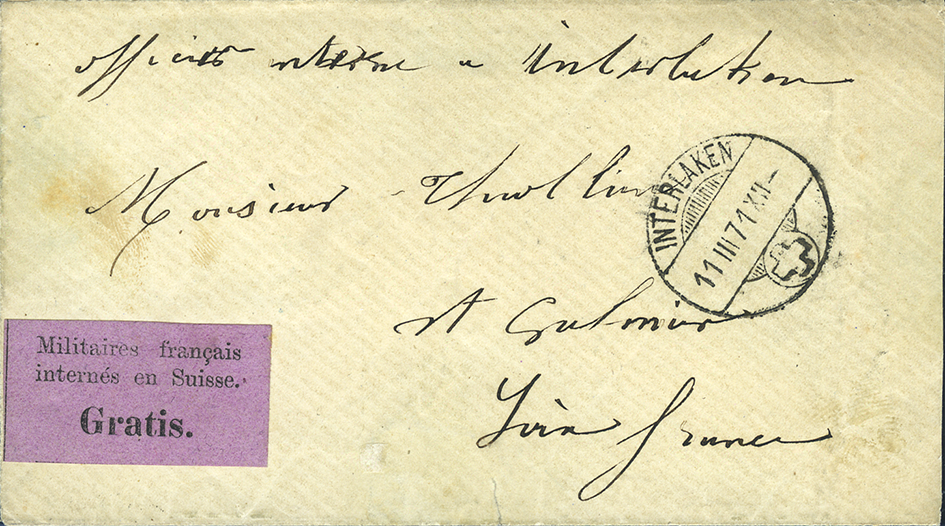 officier interné a Interlaken
Monsieur Thiollier
INTERLAKEN
11 III 71 XII –
st Galmier
Loire France
Militaires français
internés en Suisse.
Gratis.